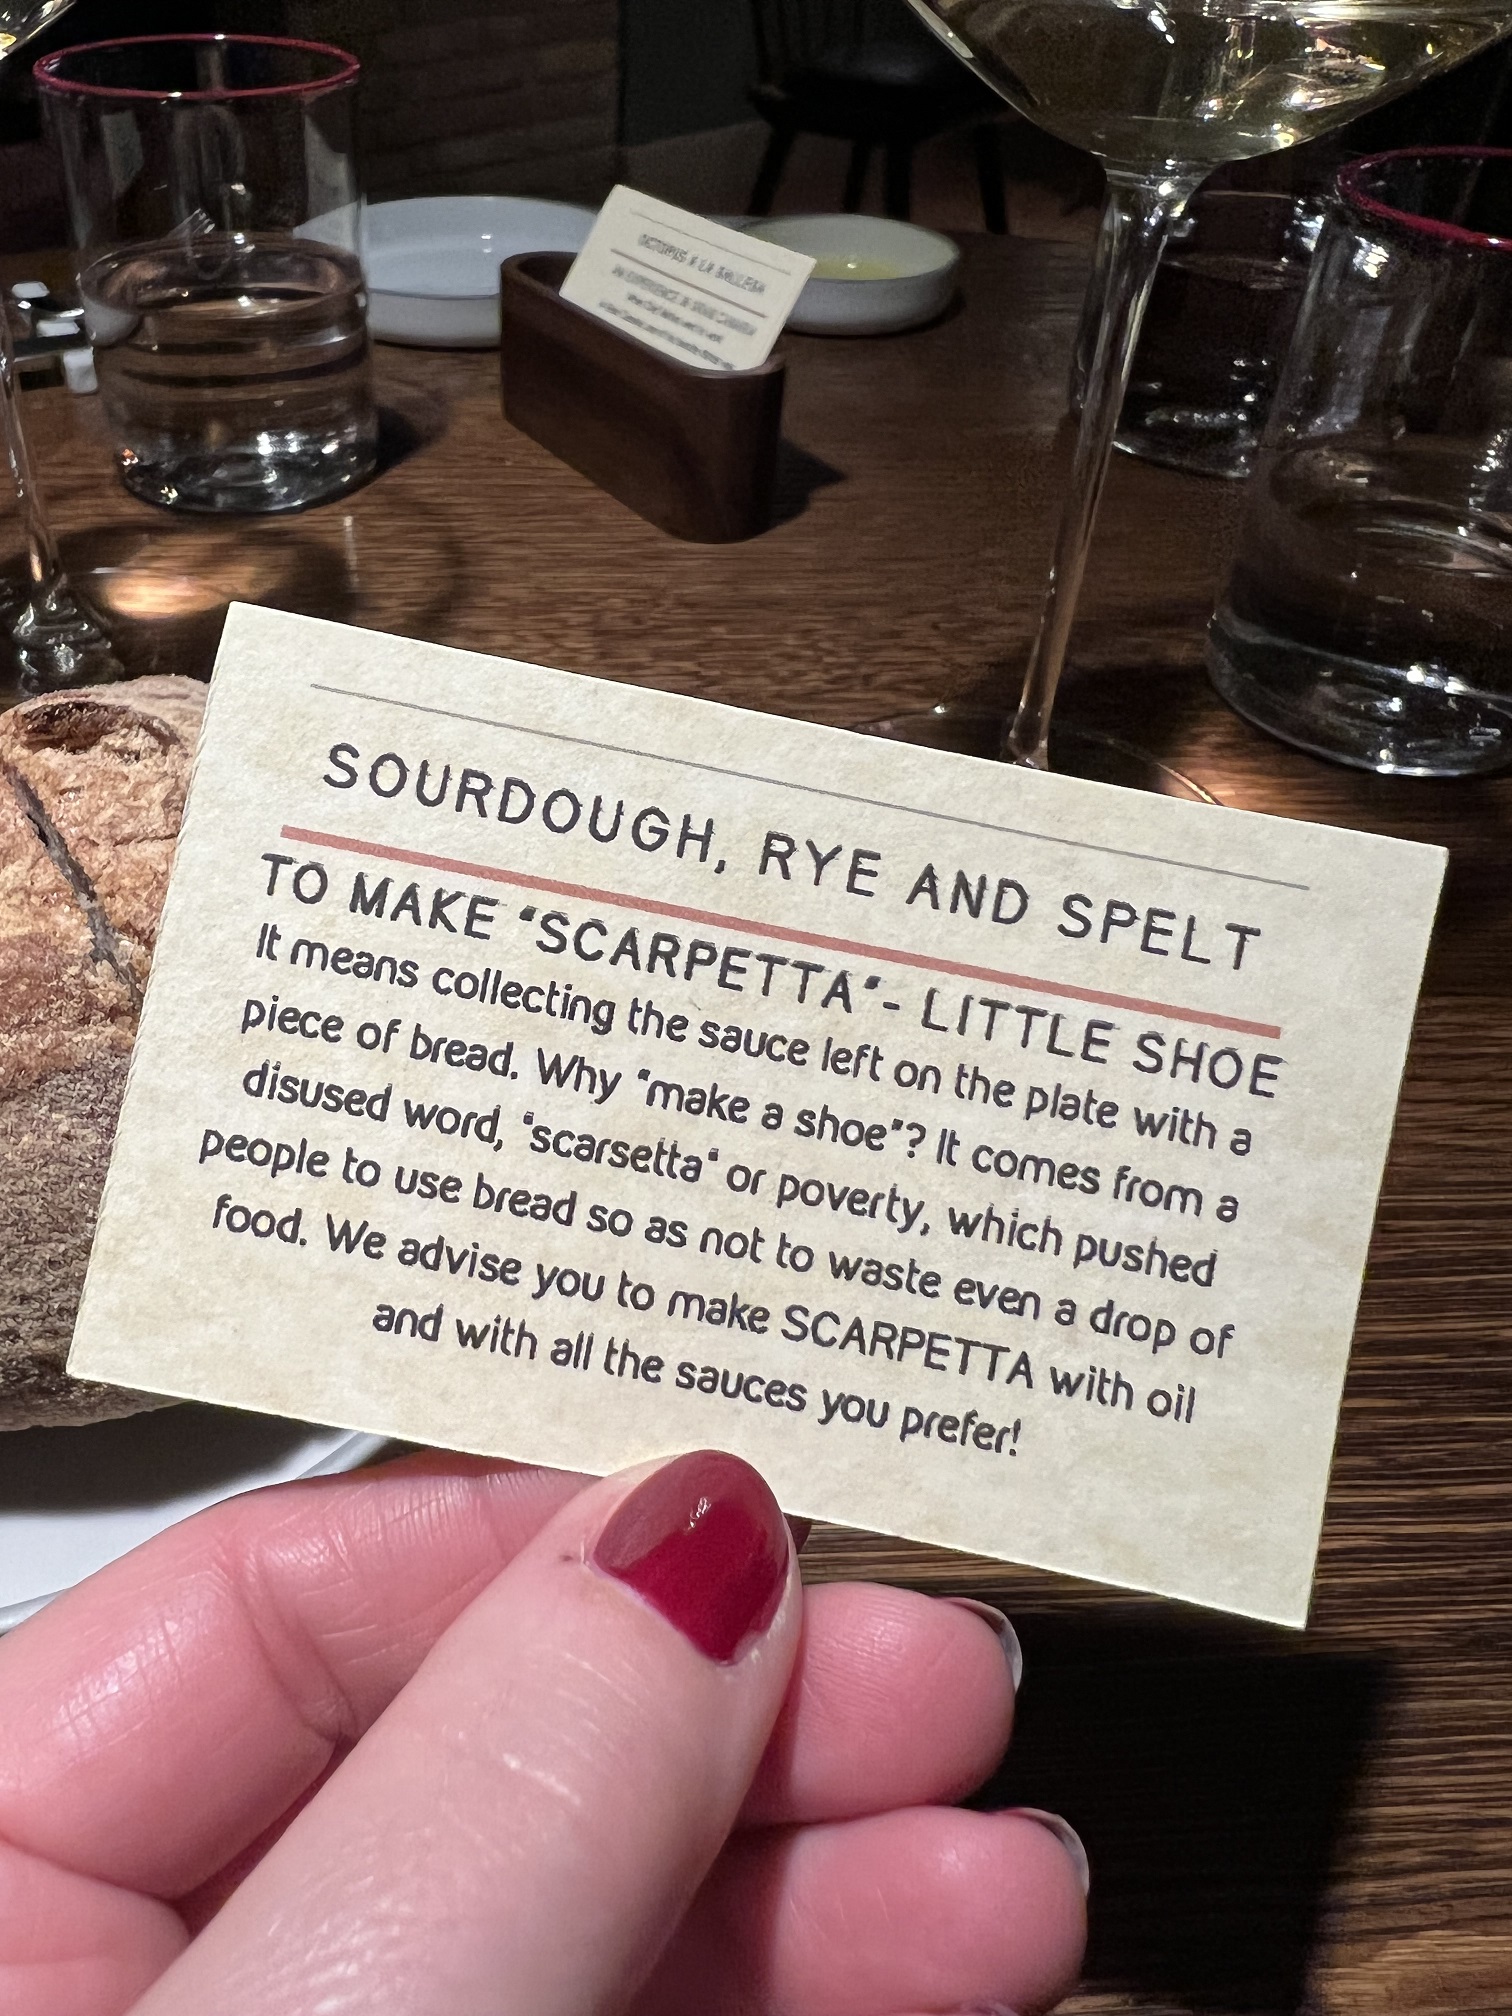 OCTOPUS A LA GALLEGA
SOURDOUGH, RYE AND SPELT
TO MAKE "SCARPETTA"- LITTLE SHOE
It means collecting the sauce left on the plate with a
piece of bread. Why "make a shoe"? It comes from a
disused word, "scarsetta" or poverty, which pushed
people to use bread so as not to waste even a drop of
food. We advise you to make SCARPETTA with oil
and with all the sauces you prefer!